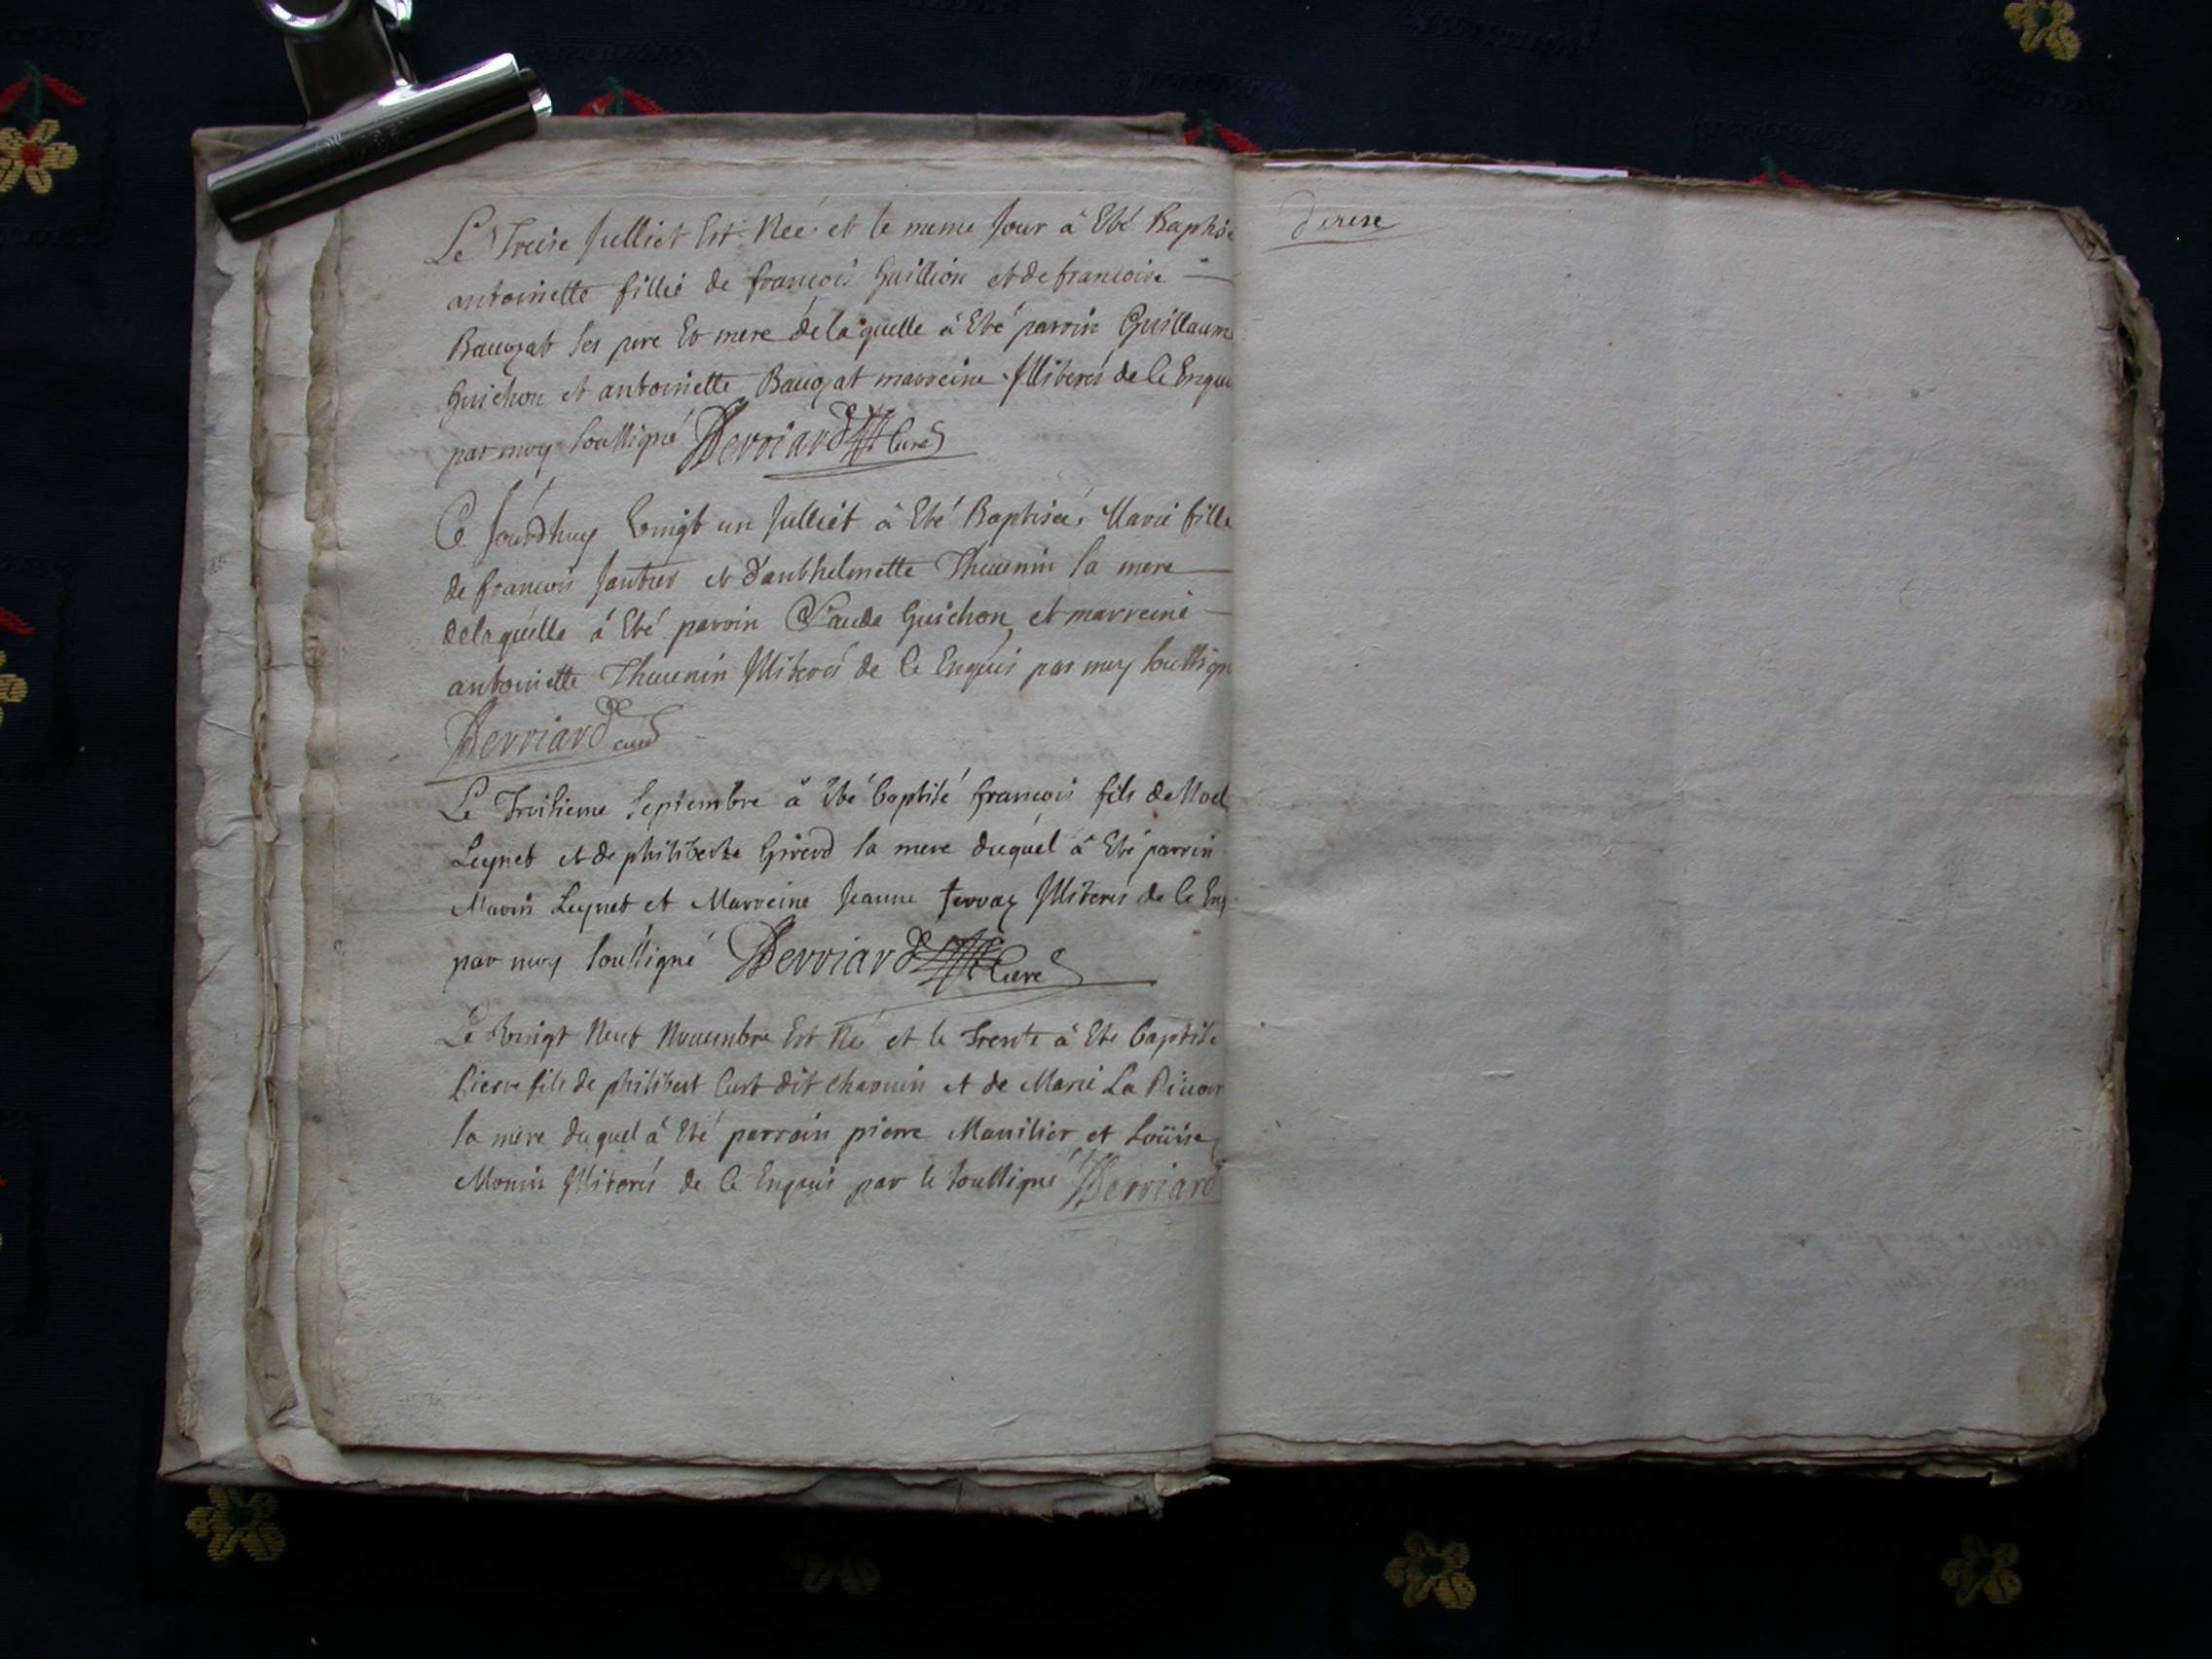 Le Treise Julliet Est Née et le meme Jour à Eté Baptisé
antoinette fillie de françois Guillion et de francoise
Baugat ses pere Et mere de laquelle à Eté parrin Guillaume
Guichon et antoinette Baugat marreine Illiterés de Ce Enquis
par moy soussigné Derriard Curé
Ce Jourdhuy Vingt un Julliet à Eté Baptisée Marie fille
de francois Jantres et d'anthelmette Theuenin sa mere
de laquelle à Eté parrin Claude Guichon et marreine
antoinette Theuenin Illiterés de Ce Enquis par moy soussign
Derriard curé
Le Troisieme Septembre à Eté baptisé françois fils de Noel
Leynet et de philiberte Girerd sa mere duquel à Eté parrin
Marin Leynet et Marreine Jeanne Ferraz Illiterés de Ce Enq
par moy soussigné Derriard Curé
Le Vingt Neuf Nouembre Est Né et le Trente à Ete baptisé
Pierre fils de philibert Curt dit charuin et de Marie La
sa mere duquel à Eté parroin pierre Manilier et Loüise
Monin Illiterés de Ce Enquis par le soussigné Derriard